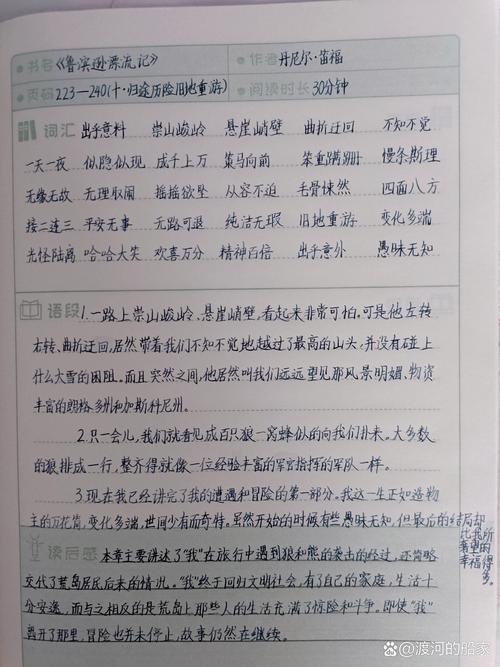 书名《鲁滨逊漂流记》 作者 丹尼尔·笛福
页码 223—240(十·归途历险旧地重游) 阅读时长 30分钟
词汇 出乎意料 崇山峻岭 悬崖峭壁 曲折迂回 不知不觉
一天一夜 似隐似现 成千上万 策马向前 笨重蹒跚 慢条斯理
无缘无故 无理取闹 摇摇欲坠 从容不迫 毛骨悚然 四面八方
接二连三 平安无事 无路可退 纯洁无瑕 旧地重游 变化多端
光怪陆离 哈哈大笑 欢喜万分 精神百倍 出乎意外 愚昧无知
语段 1.一路上崇山峻岭、悬崖峭壁,看起来非常可怕。可是他左转
右转、曲折迂回,居然带着我们不知不觉地越过了最高的山头,并没有碰上
什么大雪的困阻。而且突然之间,他居然叫我们远远望见那风景明媚、物资
丰富的朗格多州和加斯科尼州。
2.只一会儿,我们就看见成百只狼一窝蜂似的向我们扑来。大多数
的狼排成一行,整齐得就像一位经验丰富的军官指挥的军队一样。
3.现在我已经讲完了我的遭遇和冒险的第一部分。我这一生正如造物
主的万花筒,变化多端,世间少有而奇特。虽然开始的时候有些愚昧无知,但最后的结局却
比我所
奢望的
幸福得多。
读后感 本章主要讲述了“我”在旅行中遇到狼和熊的袭击的经过,还简略
交代了荒岛居民后来的情况。“我”终于回归文明社会,有了自己的家庭,生活十
分安逸,而与之相反的是荒岛上那些人的生活充满了惊险和斗争。即使“我”
离开了那里,冒险也并未停止,故事仍然在继续。
Baidu百科@渡河的船家